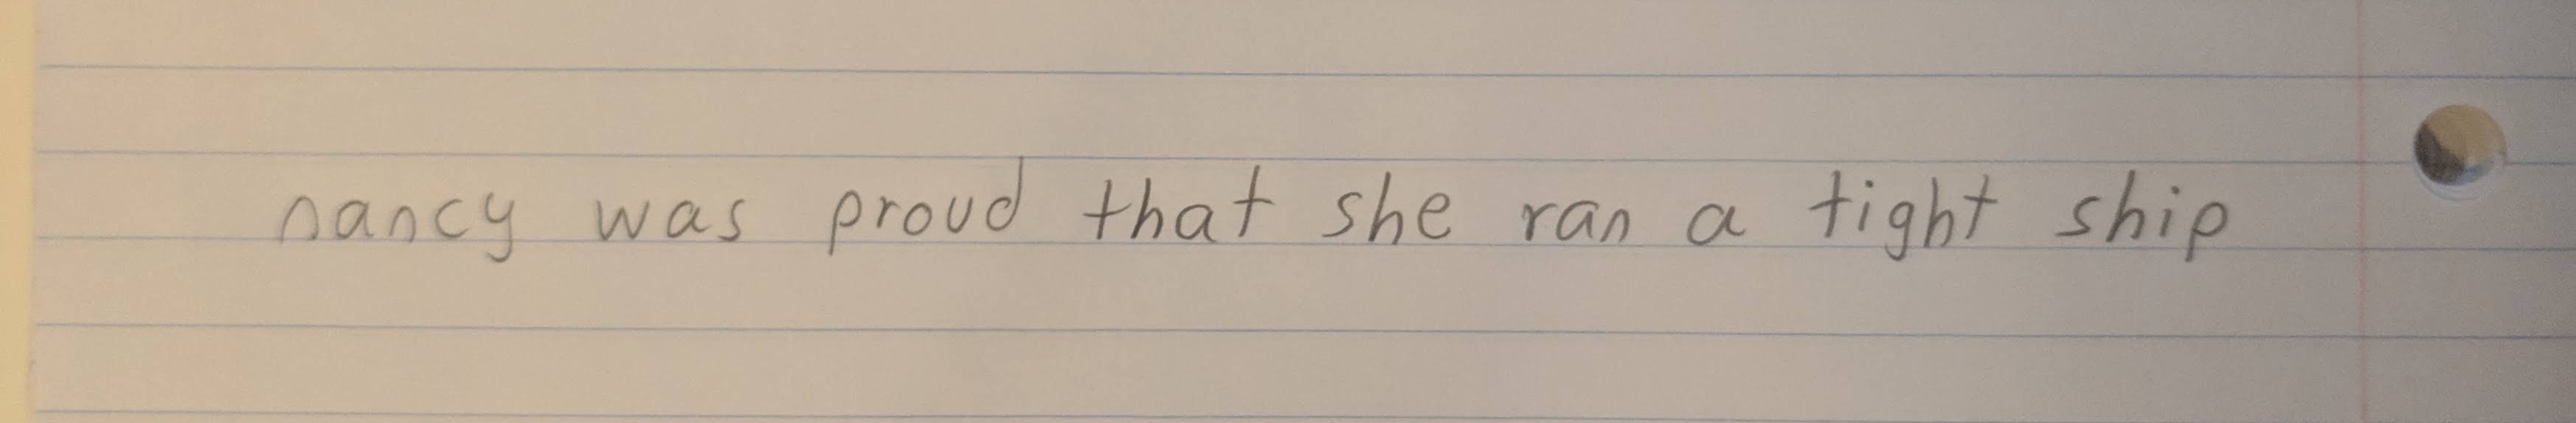 nancy was proud that she ran a tight ship